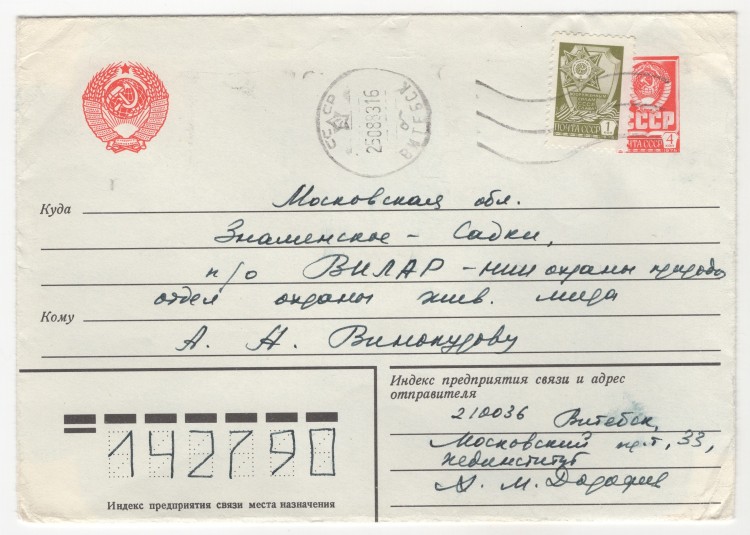 СССР 25088316 ВИТЕБСК
ПОЧТА СССР 1
СССР
ПОЧТА СССР 4
Куда Московская обл.
Знаменское - Садки,
п/о ВИЛАР - НИИ охраны природы
отдел охраны жив. мира
Кому
А. Н. Винокурову
Индекс предприятия связи и адрес
отправителя
210036 Витебск,
Московский пр.т, 33,
пединститут
А. М. Дорофеев
142790
Индекс предприятия связи места назначения